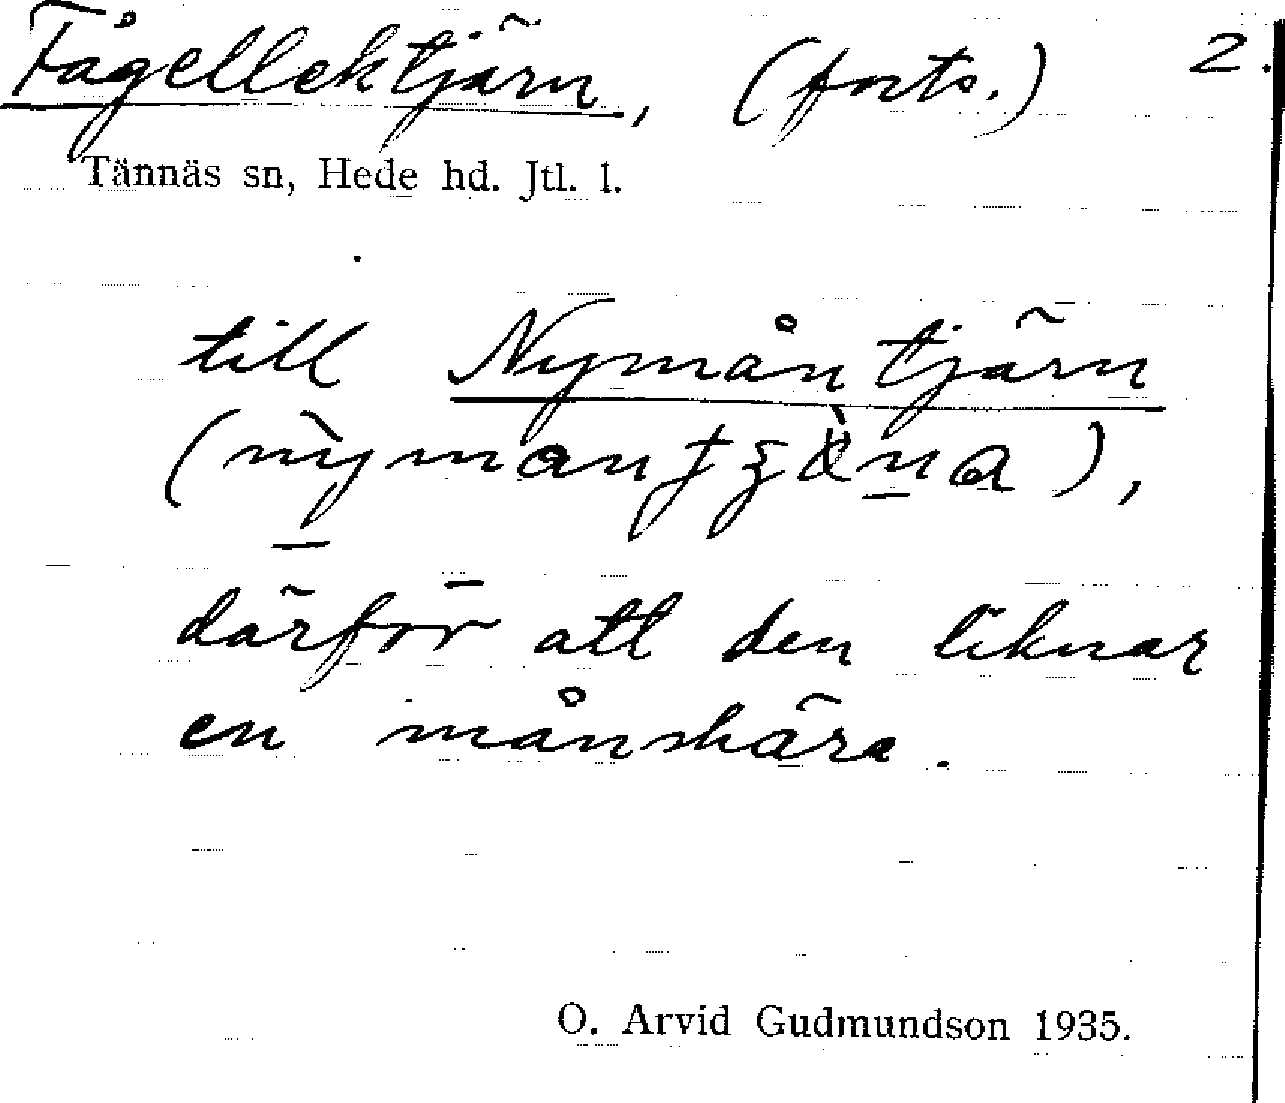 Fågellektjärn, (forts.) 2.
Tännäs sn, Hede hd. Jtl. l.
till Nymåntjärn
därför att den liknar
en månskära.
O. Arvid Gudmundson 1935.